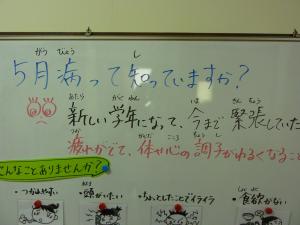 がつ びょう し
5月病って知っていますか?
あたら がくねん いま きんちょう
新しい学年になって、今まで緊張していた
つか からだ こころ ちょうし
疲れがでて、体や心の調子がわるくなること
こんなことありませんか?
・つかれやすい ・頭がいたい ・ちょっとしたことでイライラ ・食欲がない